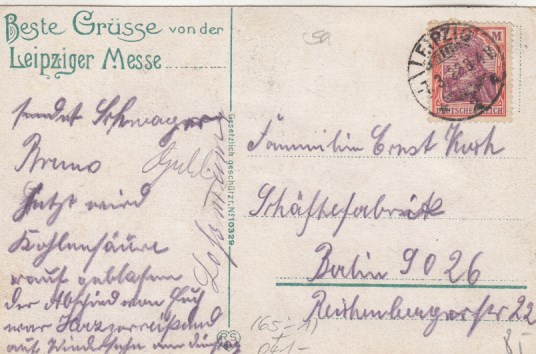 Beste Grüsse von der
Leipziger Messe
sendet Schwager
Bruno
Jetzt wird
Kohlensäure
rauf geblasen
der Abschied von Euch
war Herzzerreißend
auf Wiedersehn
Gesetzlich geschützt. № 10329
LEIPZIG
DEUTSCHES REICH
M
Fammilin Ernst
Schäftefabrik
Berlin 9026
Reichenbergerstr 22
RS